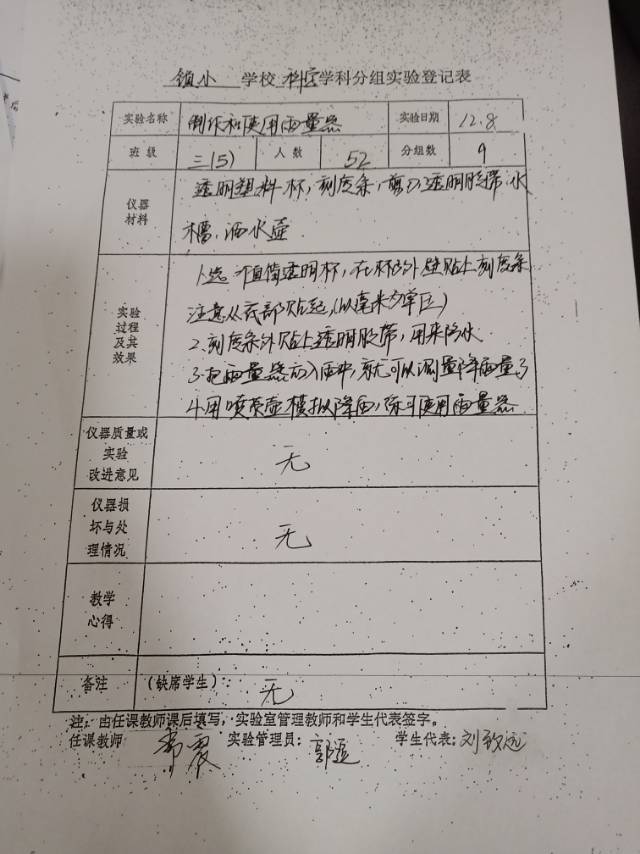 镇小 学校 科学 学科分组实验登记表
实验名称 制作和使用雨量器 实验日期 12.8
班级 三(5) 人数 52 分组数 9
仪器材料 透明塑料杯,刻度条,剪刀,透明胶带,水
槽,洒水壶
实验过程及其效果 1.选一直筒透明杯,在杯的外壁贴上刻度条
注意从底部贴起,(以毫米为单位)
2.刻度条外贴上透明胶带,用来防水
3.把雨量器放入雨中,就可以测量降雨量了
4.用喷水壶模拟降雨,练习使用雨量器
仪器质量或实验改进意见 无
仪器损坏与处理情况 无
教学心得
备注 (缺席学生): 无
注:由任课教师课后填写,实验室管理教师和学生代表签字。
任课教师 实验管理员: 学生代表:刘致远